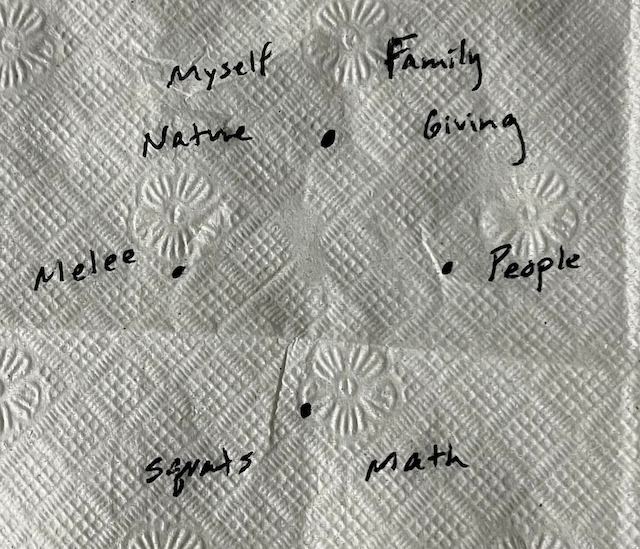 Myself Family
Nature Giving
Melee People
Squats Math